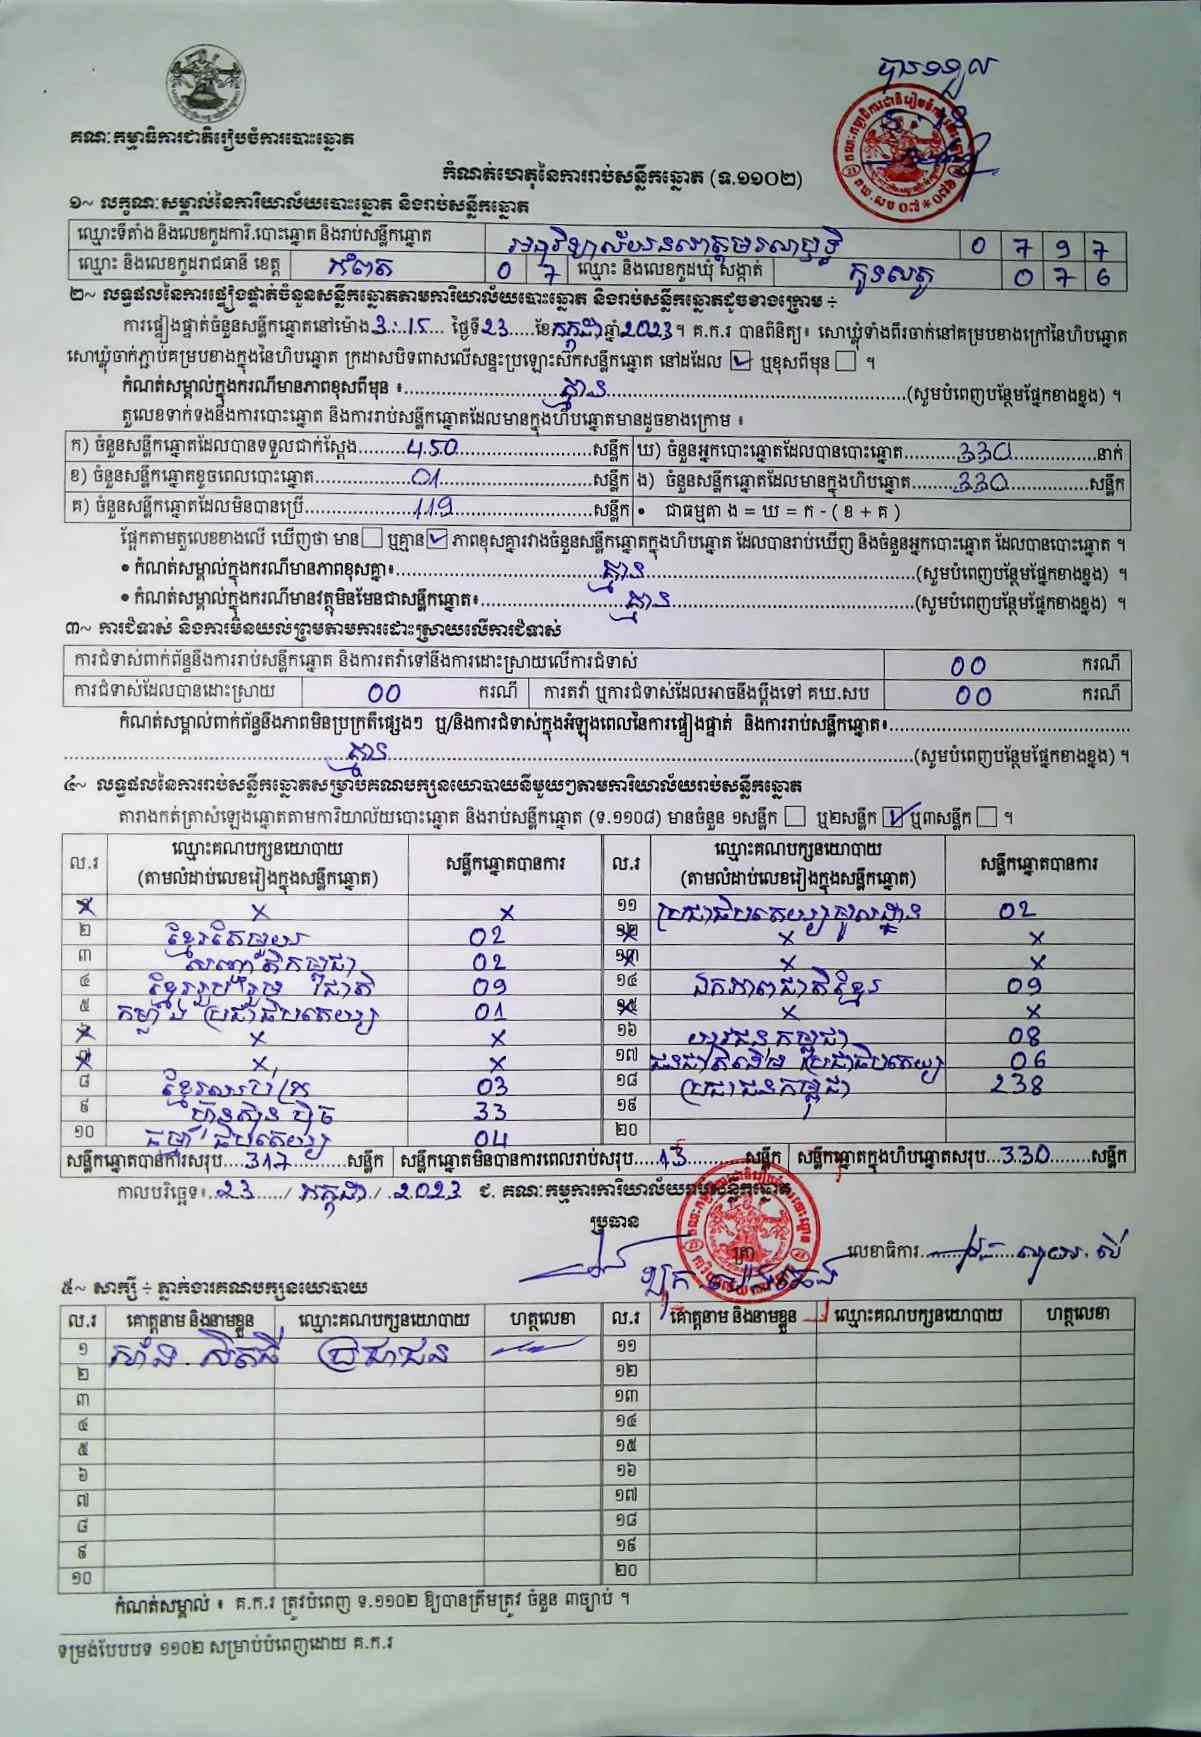 បានទទួល
គណៈកម្មាធិការជាតិរៀបចំការបោះឆ្នោត
កំណត់ហេតុនៃការរាប់សន្លឹកឆ្នោត (ទ.១១០២)
១~ លក្ខណៈសម្គាល់នៃការិយាល័យបោះឆ្នោត និងរាប់សន្លឹកឆ្នោត
ឈ្មោះទីតាំង និងលេខកូដការិ.បោះឆ្នោត និងរាប់សន្លឹកឆ្នោត 0 7 9 7
ឈ្មោះ និងលេខកូដរាជធានី ខេត្ត កំពត 0 7 ឈ្មោះ និងលេខកូដឃុំ សង្កាត់ 0 7 6
២~ លទ្ធផលនៃការផ្ទៀងផ្ទាត់ចំនួនសន្លឹកឆ្នោតតាមការិយាល័យបោះឆ្នោត និងរាប់សន្លឹកឆ្នោតដូចខាងក្រោម ÷
ការផ្ទៀងផ្ទាត់ចំនួនសន្លឹកឆ្នោតនៅម៉ោង 3:15 ថ្ងៃទី 23 ខែ កក្កដា ឆ្នាំ 2023 ។ គ.ក.រ បានពិនិត្យ៖ សោឃ្លុំទាំងពីរចាក់នៅគម្របខាងក្រៅនៃហិបឆ្នោត
សោឃ្លុំចាក់ភ្ជាប់គម្របខាងក្នុងនៃហិបឆ្នោត ក្រដាសបិទពាសលើសន្ទះប្រឡោះស៊កសន្លឹកឆ្នោត នៅដដែល ✓ ឬខុសពីមុន ។
កំណត់សម្គាល់ក្នុងករណីមានភាពខុសពីមុន ៖ គ្មាន (សូមបំពេញបន្ថែមផ្នែកខាងខ្នង) ។
តួលេខទាក់ទងនឹងការបោះឆ្នោត និងការរាប់សន្លឹកឆ្នោតដែលមានក្នុងហិបឆ្នោតមានដូចខាងក្រោម ៖
ក) ចំនួនសន្លឹកឆ្នោតដែលបានទទួលជាក់ស្តែង 450 សន្លឹក ឃ) ចំនួនអ្នកបោះឆ្នោតដែលបានបោះឆ្នោត 330 នាក់
ខ) ចំនួនសន្លឹកឆ្នោតខូចពេលបោះឆ្នោត 01 សន្លឹក ង) ចំនួនសន្លឹកឆ្នោតដែលមានក្នុងហិបឆ្នោត 330 សន្លឹក
គ) ចំនួនសន្លឹកឆ្នោតដែលមិនបានប្រើ 119 សន្លឹក • ជាធម្មតា ង = ឃ = ក - ( ខ + គ )
ផ្អែកតាមតួលេខខាងលើ ឃើញថា មាន ឬគ្មាន ✓ ភាពខុសគ្នារវាងចំនួនសន្លឹកឆ្នោតក្នុងហិបឆ្នោត ដែលបានរាប់ឃើញ និងចំនួនអ្នកបោះឆ្នោត ដែលបានបោះឆ្នោត ។
• កំណត់សម្គាល់ក្នុងករណីមានភាពខុសគ្នា៖ គ្មាន (សូមបំពេញបន្ថែមផ្នែកខាងខ្នង) ។
• កំណត់សម្គាល់ក្នុងករណីមានវត្ថុមិនមែនជាសន្លឹកឆ្នោត៖ គ្មាន (សូមបំពេញបន្ថែមផ្នែកខាងខ្នង) ។
៣~ ការជំទាស់ និងការមិនយល់ព្រមតាមការដោះស្រាយលើការជំទាស់
ការជំទាស់ពាក់ព័ន្ធនឹងការរាប់សន្លឹកឆ្នោត និងការតវ៉ាទៅនឹងការដោះស្រាយលើការជំទាស់ 00 ករណី
ការជំទាស់ដែលបានដោះស្រាយ 00 ករណី ការតវ៉ា ឬការជំទាស់ដែលអាចនឹងប្តឹងទៅ គឃ.សប 00 ករណី
កំណត់សម្គាល់ពាក់ព័ន្ធនឹងភាពមិនប្រក្រតីផ្សេងៗ ឬ/និងការជំទាស់ក្នុងអំឡុងពេលនៃការផ្ទៀងផ្ទាត់ និងការរាប់សន្លឹកឆ្នោត៖
គ្មាន (សូមបំពេញបន្ថែមផ្នែកខាងខ្នង) ។
៤~ លទ្ធផលនៃការរាប់សន្លឹកឆ្នោតសម្រាប់គណបក្សនយោបាយនីមួយៗតាមការិយាល័យរាប់សន្លឹកឆ្នោត
តារាងកត់ត្រាសំឡេងឆ្នោតតាមការិយាល័យបោះឆ្នោត និងរាប់សន្លឹកឆ្នោត (ទ.១១០៨) មានចំនួន ១សន្លឹក ឬ២សន្លឹក ✓ ឬ៣សន្លឹក ។
ល.រ ឈ្មោះគណបក្សនយោបាយ (តាមលំដាប់លេខរៀងក្នុងសន្លឹកឆ្នោត) សន្លឹកឆ្នោតបានការ ល.រ ឈ្មោះគណបក្សនយោបាយ (តាមលំដាប់លេខរៀងក្នុងសន្លឹកឆ្នោត) សន្លឹកឆ្នោតបានការ
១ x x ១១ ប្រជាធិបតេយ្យមូលដ្ឋាន 02
២ ខ្មែរតែមួយ 02 ១២ x x
៣ សញ្ជាតិកម្ពុជា 02 ១៣ x x
៤ ខ្មែររួបរួមជាតិ 09 ១៤ ឯកភាពជាតិខ្មែរ 09
៥ កម្លាំងប្រជាធិបតេយ្យ 01 ១៥ x x
៦ x x ១៦ យុវជនកម្ពុជា 08
៧ x x ១៧ ជនជាតិដើមប្រជាធិបតេយ្យ 06
៨ ខ្មែរឈប់ក្រ 03 ១៨ ប្រជាជនកម្ពុជា 238
៩ ហ៊្វុនស៊ិនប៉ិច 33 ១៩
១០ ធម្មាធិបតេយ្យ 04 ២០
សន្លឹកឆ្នោតបានការសរុប 317 សន្លឹក សន្លឹកឆ្នោតមិនបានការពេលរាប់សរុប 13 សន្លឹក សន្លឹកឆ្នោតក្នុងហិបឆ្នោតសរុប 330 សន្លឹក
កាលបរិច្ឆេទ៖ 23 / កក្កដា / 2023 ជ. គណៈកម្មការការិយាល័យរាប់សន្លឹកឆ្នោត
ប្រធាន
ត្រា លេខាធិការ
៥~ សាក្សី ÷ ភ្នាក់ងារគណបក្សនយោបាយ
ល.រ គោត្តនាម និងនាមខ្លួន ឈ្មោះគណបក្សនយោបាយ ហត្ថលេខា ល.រ គោត្តនាម និងនាមខ្លួន ឈ្មោះគណបក្សនយោបាយ ហត្ថលេខា
១ ប្រជាជន ១១
២ ១២
៣ ១៣
៤ ១៤
៥ ១៥
៦ ១៦
៧ ១៧
៨ ១៨
៩ ១៩
១០ ២០
កំណត់សម្គាល់ ៖ គ.ក.រ ត្រូវបំពេញ ទ.១១០២ ឱ្យបានត្រឹមត្រូវ ចំនួន ៣ច្បាប់ ។
ទម្រង់បែបបទ ១១០២ សម្រាប់បំពេញដោយ គ.ក.រ